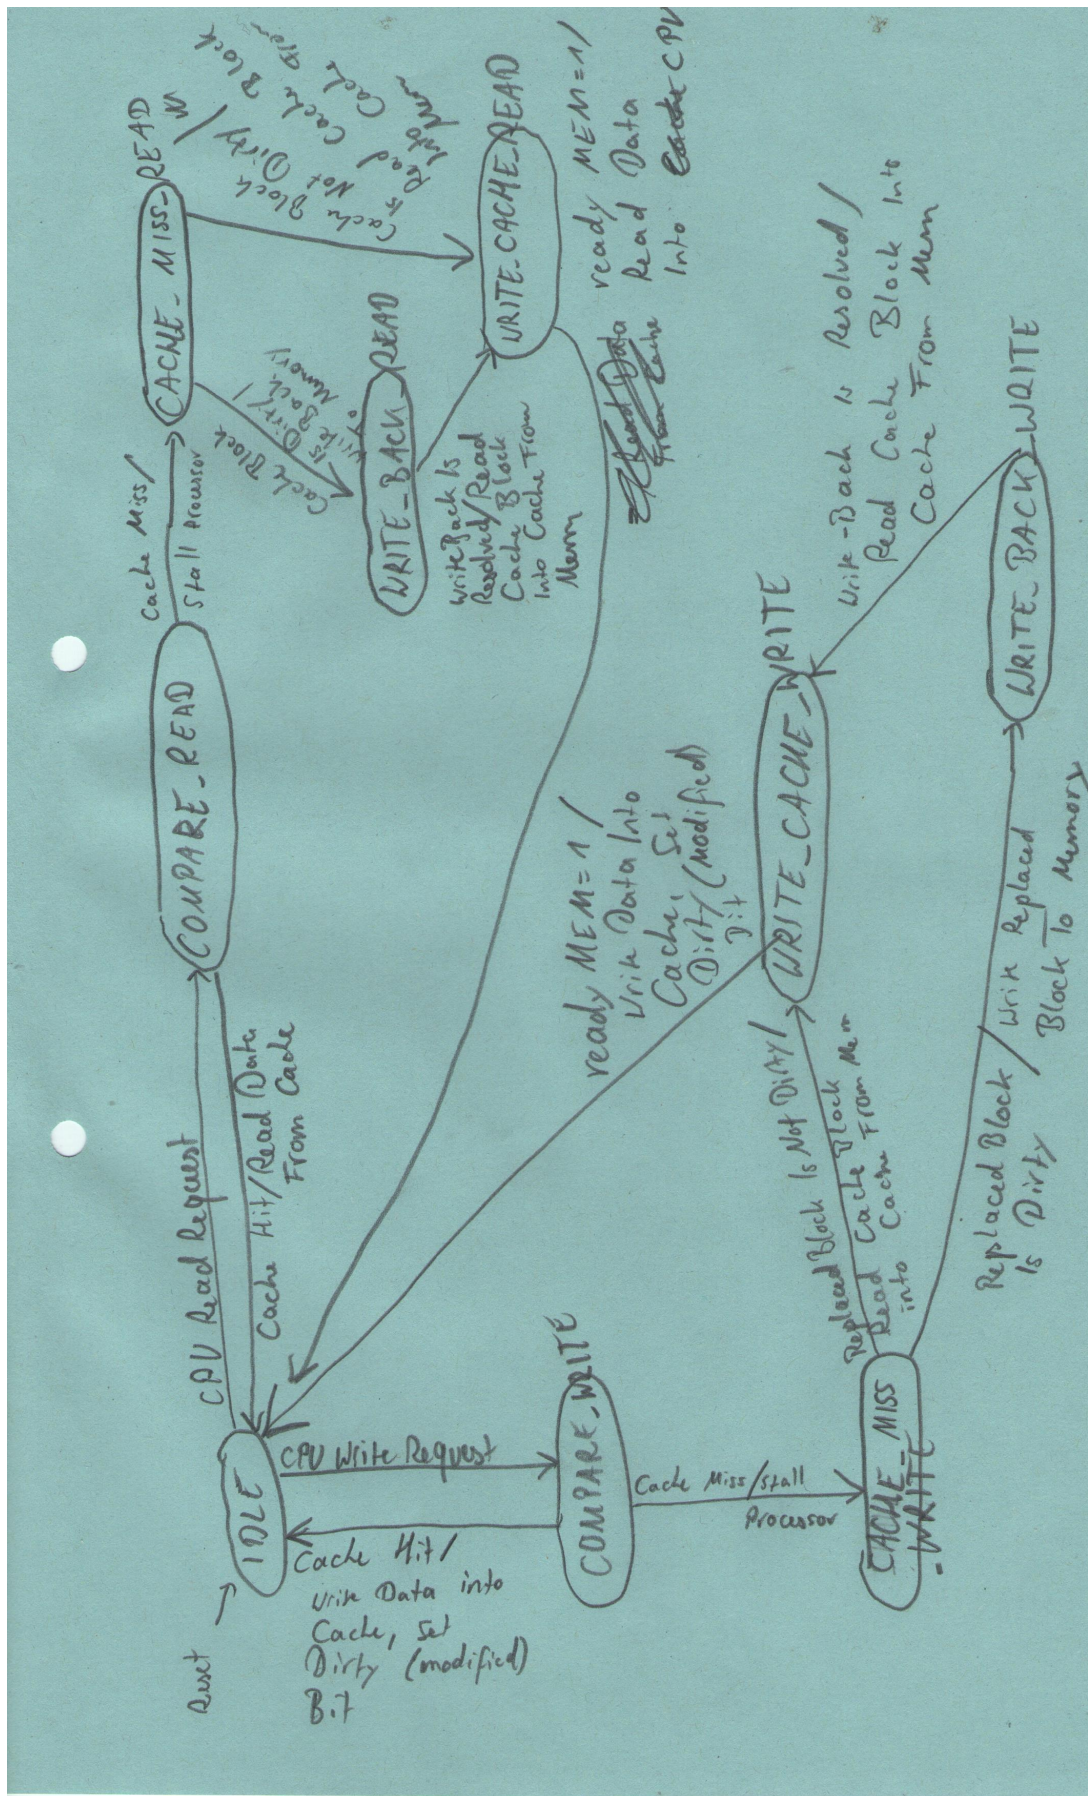 Reset
IDLE
CPU Read Request
Cache Hit/Read Data
From Cache
COMPARE_READ
Cache Miss/
Stall Processor
CACHE_MISS_READ
Cache Block
Is Dirty/
Write Back
to Memory
Cache Block
Is Not Dirty/
Read Cache Block
Into
Cache From
Mem
WRITE_BACK_READ
WriteBack Is
Resolved/Read
Cache Block
Into Cache From
Mem
WRITE_CACHE_READ
ready MEM=1/
Read Data
Into CPU
CPU Write Request
Cache Hit/
Write Data into
Cache, Set
Dirty (modified)
Bit
COMPARE_WRITE
Cache Miss/Stall
Processor
CACHE_MISS
_WRITE
Replaced Block Is Not Dirty/
Replaced
Read Cache Block
into Cache From Mem
ready MEM=1/
Write Data Into
Cache, Set
Dirty (modified)
Bit
WRITE_CACHE_WRITE
Replaced Block / Write Replaced
Is Dirty Block To Memory
WRITE_BACK_WRITE
Write-Back is Resolved/
Read Cache Block Into
Cache From Mem